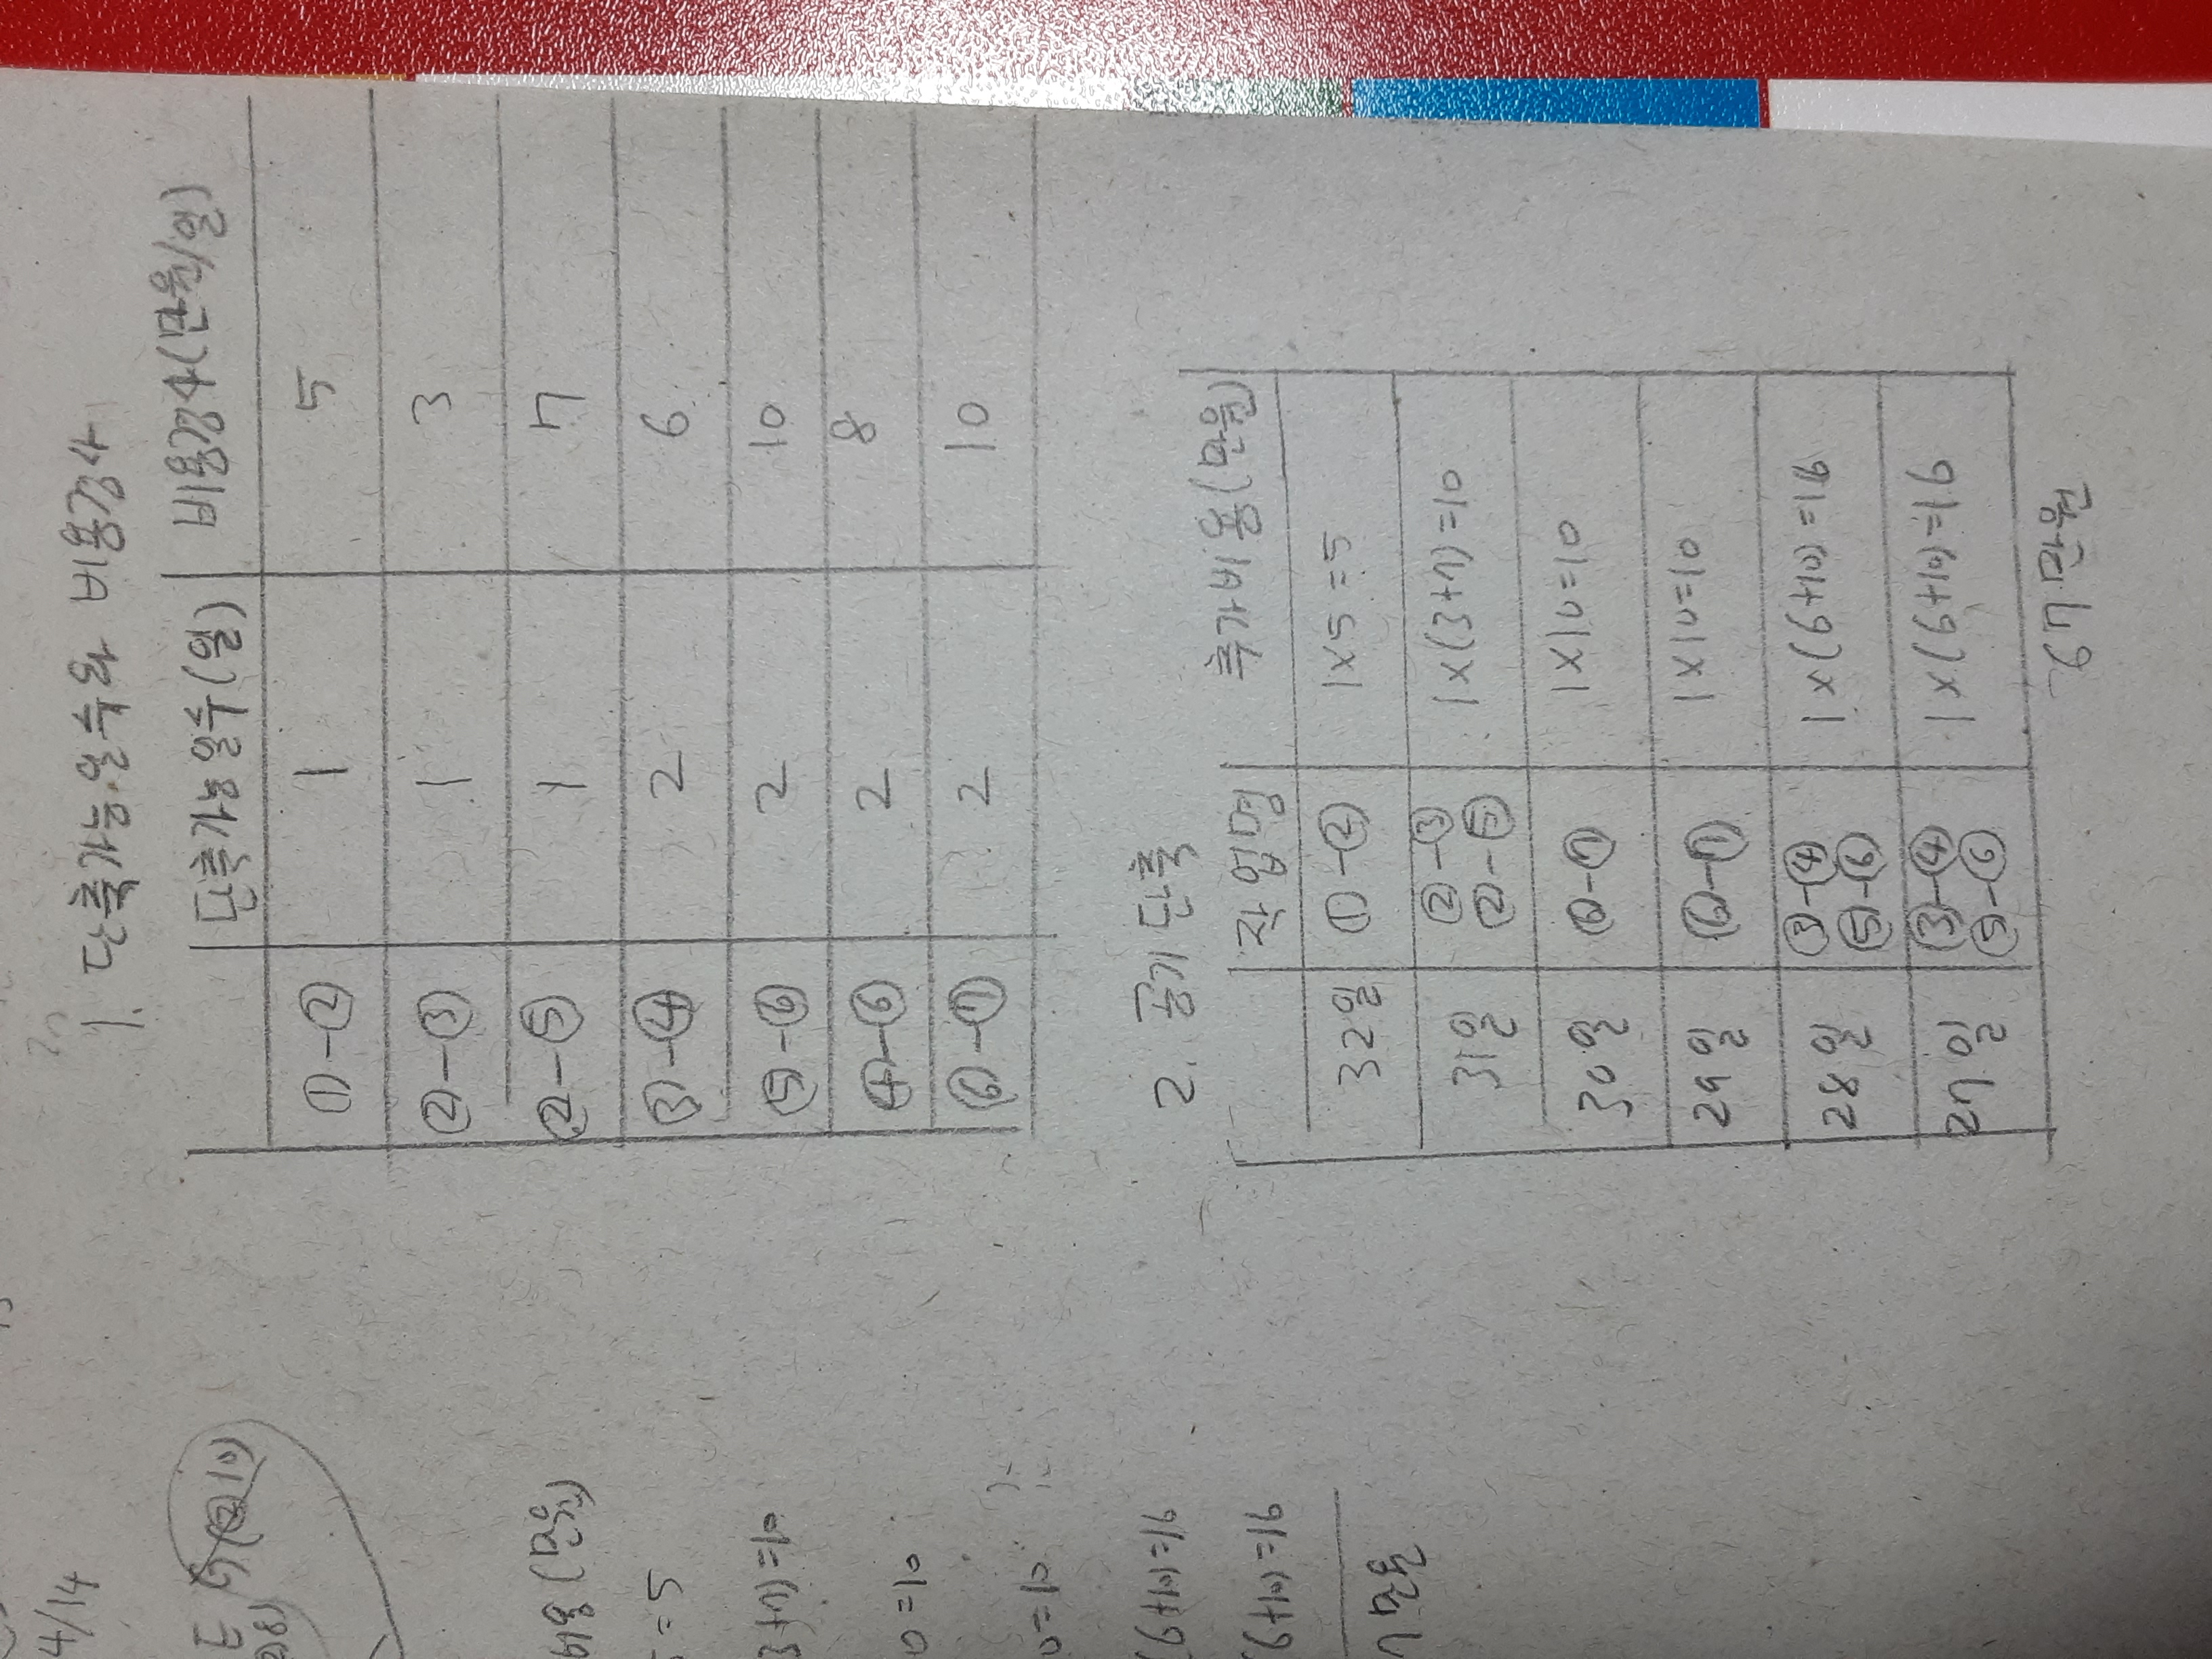 1. 단축가능 일수와 비용경사
단축가능일수(일) 비용경사(만원/일)
①-② 1 5
②-③ 1 3
②-⑤ 1 7
③-④ 2 6
⑤-⑥ 2 10
④-⑥ 2 8
⑥-⑦ 2 10
2. 공기 단축
작업명 추가비용(만원)
32일 ①-② 1×5=5
31일 ②-③ 1×(3+7)=10
②-⑤
30일 ⑥-⑦ 1×10=10
29일 ⑥-⑦ 1×10=10
28일 ③-④ 1×(6+10)=16
⑤-⑥
27일 ③-④ 1×(6+10)=16
⑤-⑥
67만원
4/14
비용(만원)
=5
3+7)=10
0=10
0=10
(6+10)=16
(6+10)=16
7만원